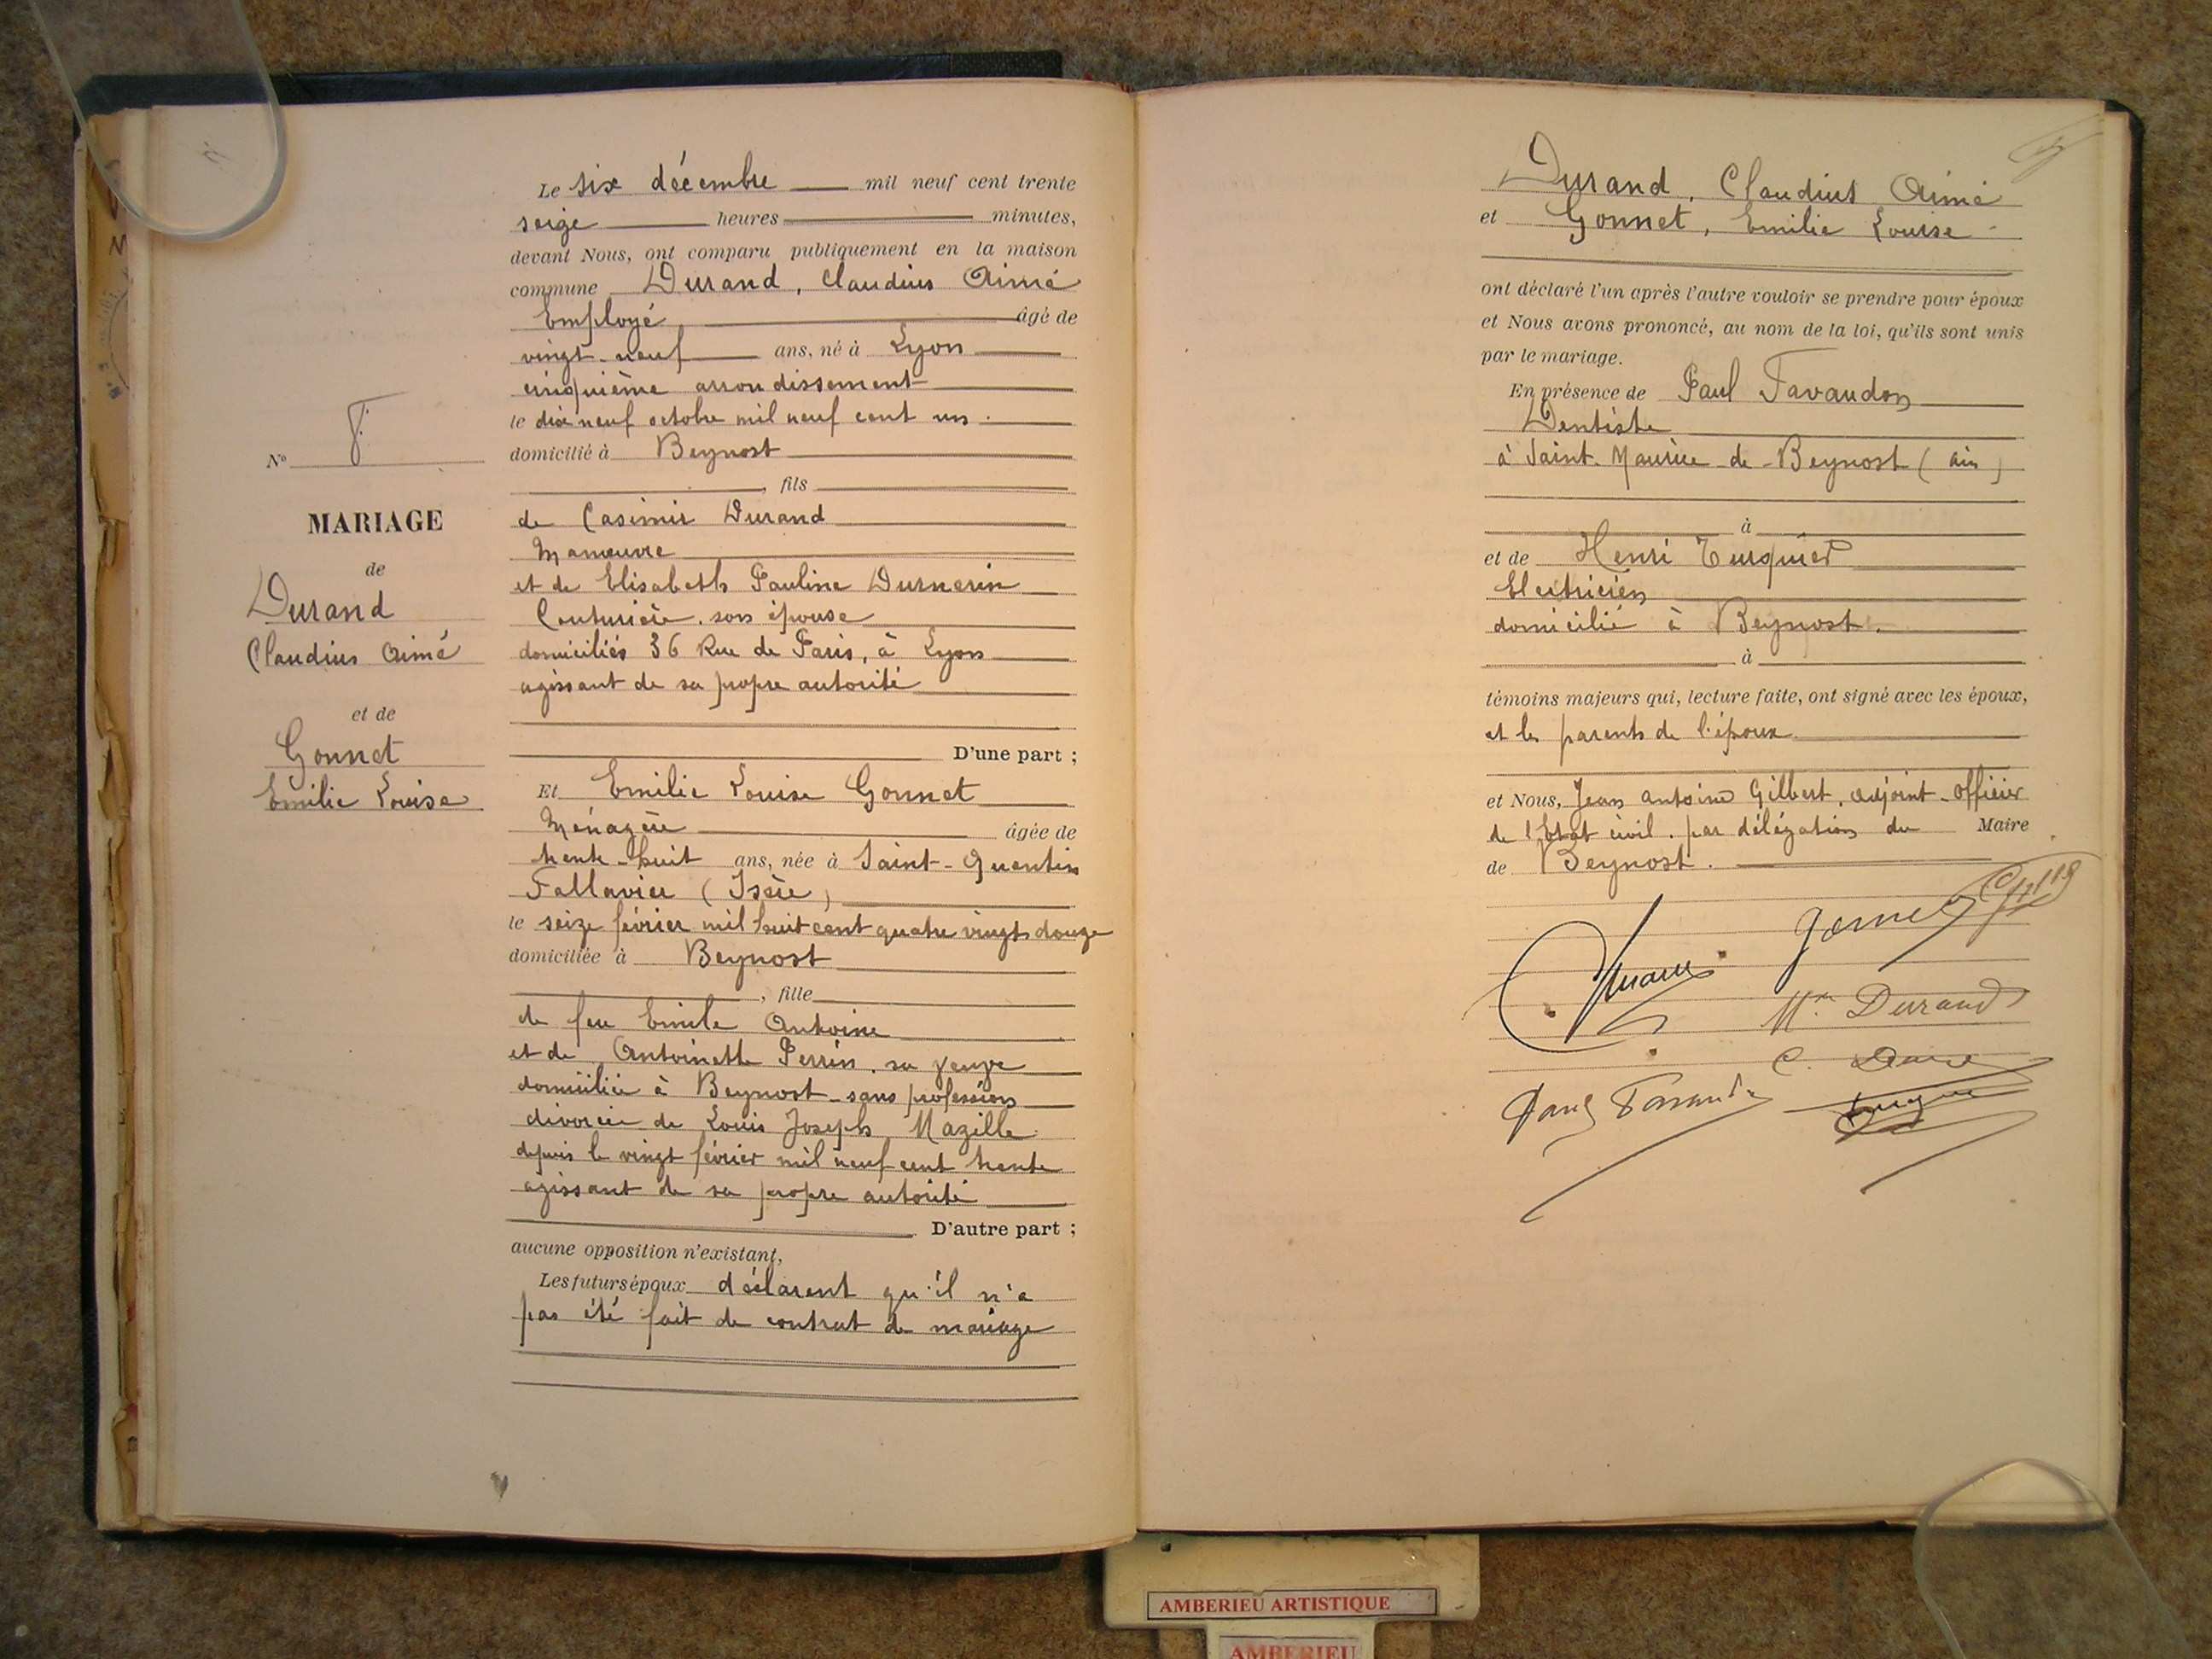 Le six décembre mil neuf cent trente
seize heures minutes,
devant Nous, ont comparu publiquement en la maison
commune Durand, Claudius Aimé
Employé âgé de
vingt-neuf ans, né à Lyon
cinquième arrondissement
le dix neuf octobre mil neuf cent un.
domicilié à Beynost
, fils
de Casimir Durand
Manœuvre
et de Elisabeth Pauline Durnerin
Couturière, son épouse
domiciliés 36 Rue de Paris, à Lyon
agissant de sa propre autorité
D'une part ;
N° 8
MARIAGE
de
Durand
Claudius Aimé
et de
Gonnet
Emilie Louise
Et Emilie Louise Gonnet
Ménagère âgée de
trente-huit ans, née à Saint-Quentin
Fallavier (Isère)
le seize février mil huit cent quatre vingt douze
domiciliée à Beynost
, fille
de feu Emile Antoine
et de Antoinette Perrin, sa veuve
domiciliée à Beynost-sans profession
divorcée de Louis Joseph Mazille
depuis le vingt février mil neuf cent trente
agissant de sa propre autorité
D'autre part ;
aucune opposition n'existant,
Les futurs époux déclarent qu'il n'a
pas été fait de contrat de mariage
Durand, Claudius Aimé
et Gonnet, Emilie Louise
ont déclaré l'un après l'autre vouloir se prendre pour époux
et Nous avons prononcé, au nom de la loi, qu'ils sont unis
par le mariage.
En présence de Paul Favaudon
Dentiste
à Saint-Maurice-de-Beynost (ain)
à
et de Henri Turquier
Electricien
domicilié à Beynost.
à
témoins majeurs qui, lecture faite, ont signé avec les époux,
et les parents de l'époux
et Nous, Jean Antoine Gilbert, adjoint-officier
de l'Etat civil, par délégation du Maire
de Beynost.
Mme Durand
AMBERIEU ARTISTIQUE
AMBERIEU